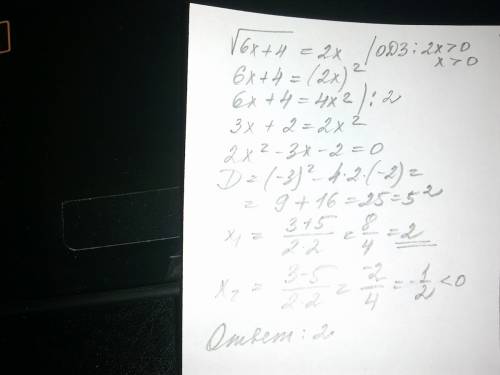 √6x+4 = 2x /ОДЗ: 2x>0
x>0
6x+4=(2x)²
6x+4=4x²):2
3x+2=2x²
2x²-3x-2=0
D=(-3)²-4·2·(-2)=
= 9+16=25=5²
x₁ = (3+5)/(2·2) = 8/4 = 2
x₂ = (3-5)/(2·2) = -2/4 = -1/2 <0
Ответ: 2